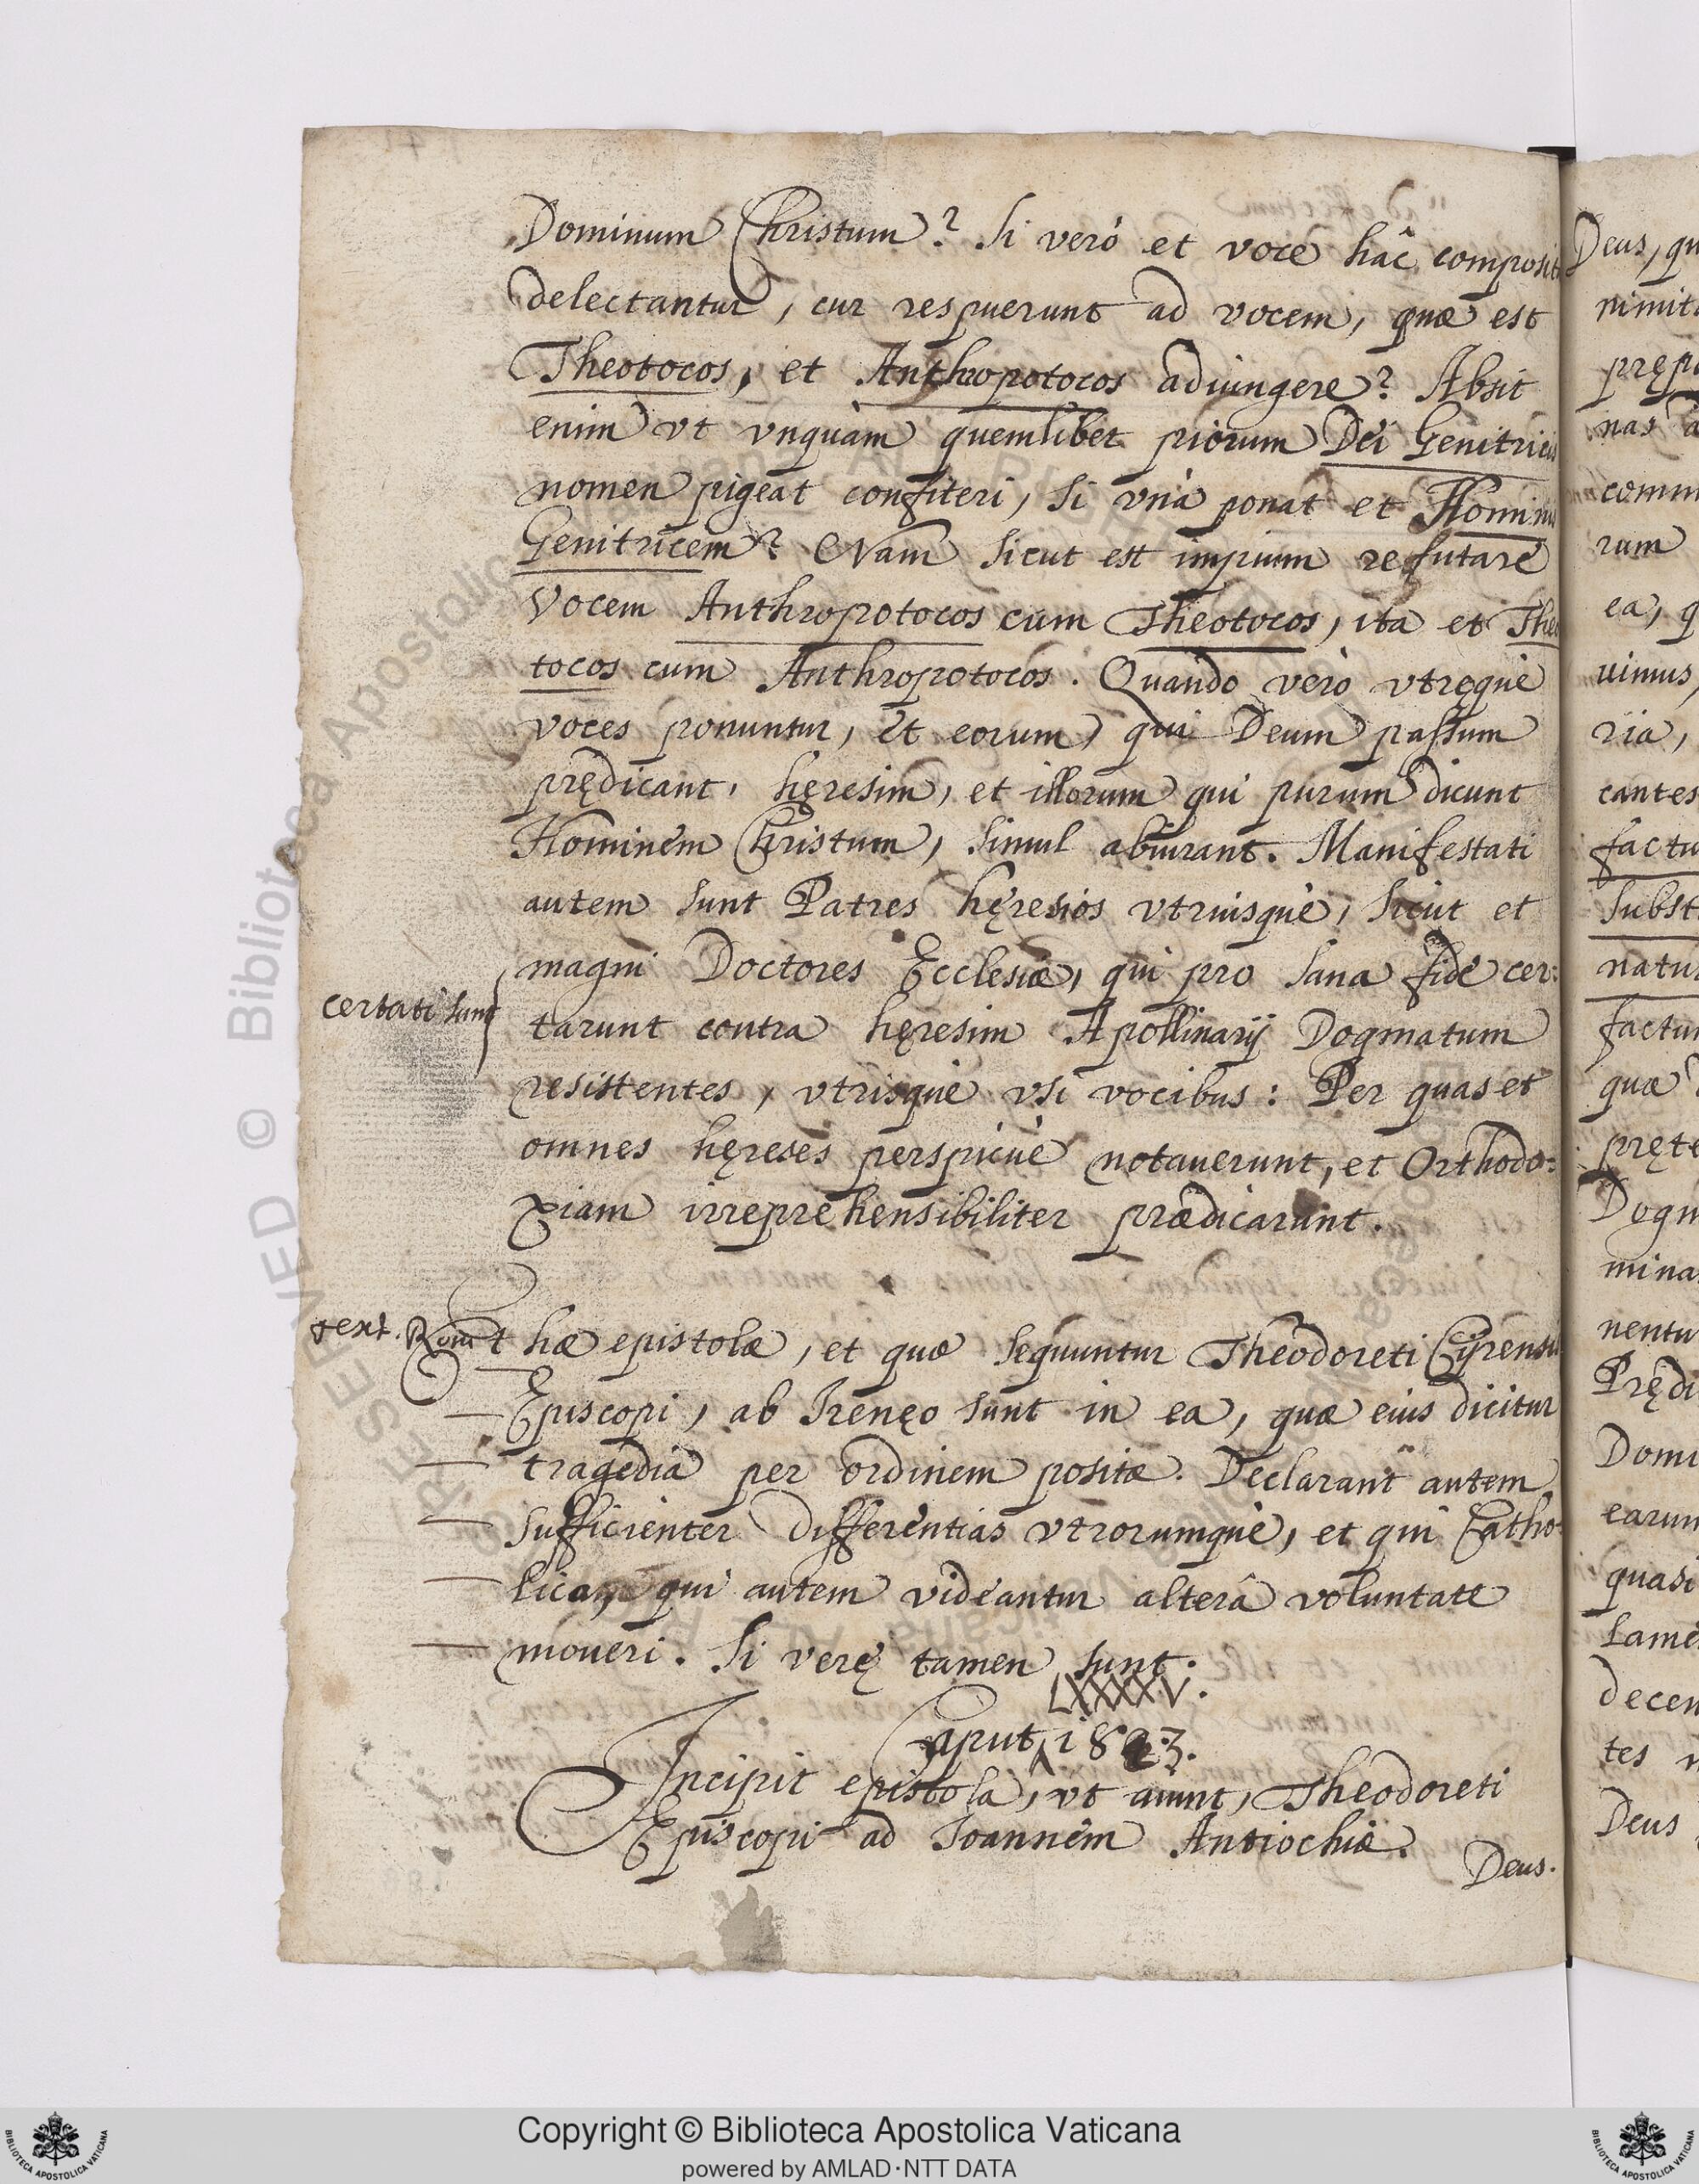 Dominum Christum? Si verò et voce hâc composit
delectantur, cur respuerunt ad vocem, quæ est
Theotocos, et Anthropotocos adiungere? Absit
enim vt vnquàm quemlibet piorum Dei Genitricis
nomen pigeat confiteri, si vnà ponat et Hominis
Genitricem? Nam sicut est impium refutare
vocem Anthropotocos cum Theotocos, ita et Theo
tocos cum Anthropotocos. Quando verò vtręque
voces ponuntur, et eorum, qui Deum passum
prędicant, hęresim, et illorum qui purum dicunt
Hominem Christum, simul abiurant. Manifestati
autem sunt Patres hęresios vtriusque, sicut et
magni Doctores Ecclesiæ, qui pro sana fide cer:
certati sunt
tarunt contra hęresim Apollinarij Dogmatum
resistentes, vtrisque vsi vocibus: Per quas et
omnes hęreses perspicuè notauerunt, et Orthodo:
xiam irreprehensibiliter prædicarunt.
text. Rom
t hæ epistolæ, et quæ sequuntur Theodoreti Cyrensis
Episcopi, ab Irenęo sunt in ea, quæ eius dicitur
tragędia per ordinem positæ. Declarant autem
sufficienter differentias vtrorumque, et qui Catho:
lica, qui autem videantur alterâ voluntate
moueri. Si verę tamen sunt.
LXXXXV.
Caput 18 3.
Incipit epistola, vt aiunt, Theodoreti
Episcopi ad Joannem Antiochiæ.
Deus.
Deus, qu
nimit
pręp
nas a
comm
ram
ea, q
uimus,
ria,
cantes
factu
subst
natu
factum
quæ
pręte
Dogm
mina
nentu
Prędi
Domi
earum
quasi
lame
decen
tes n
Deus
RESERVED © Biblioteca Apostolica Vaticana
Copyright © Biblioteca Apostolica Vaticana
powered by AMLAD·NTT DATA
BIBLIOTECA APOSTOLICA VATICANA
BIBLIOTECA APOSTOLICA VATICANA